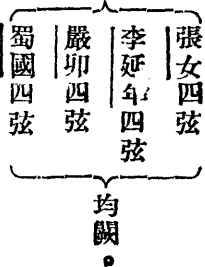 張女四弦
李延年四弦
嚴卯四弦
蜀國四弦
均闕。